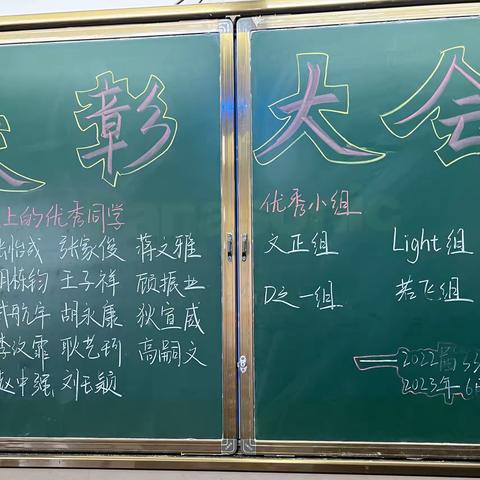 表彰大会
上的优秀同学
怡成 张家俊 蒋文雅
栋钧 王子祥 顾振业
航宇 胡永康 狄宣威
李汶霏 耿艺珂 高嗣文
赵中强 刘玉颖
优秀小组
文正组 Light组
D之一组 若飞组
2022届
2023年6月